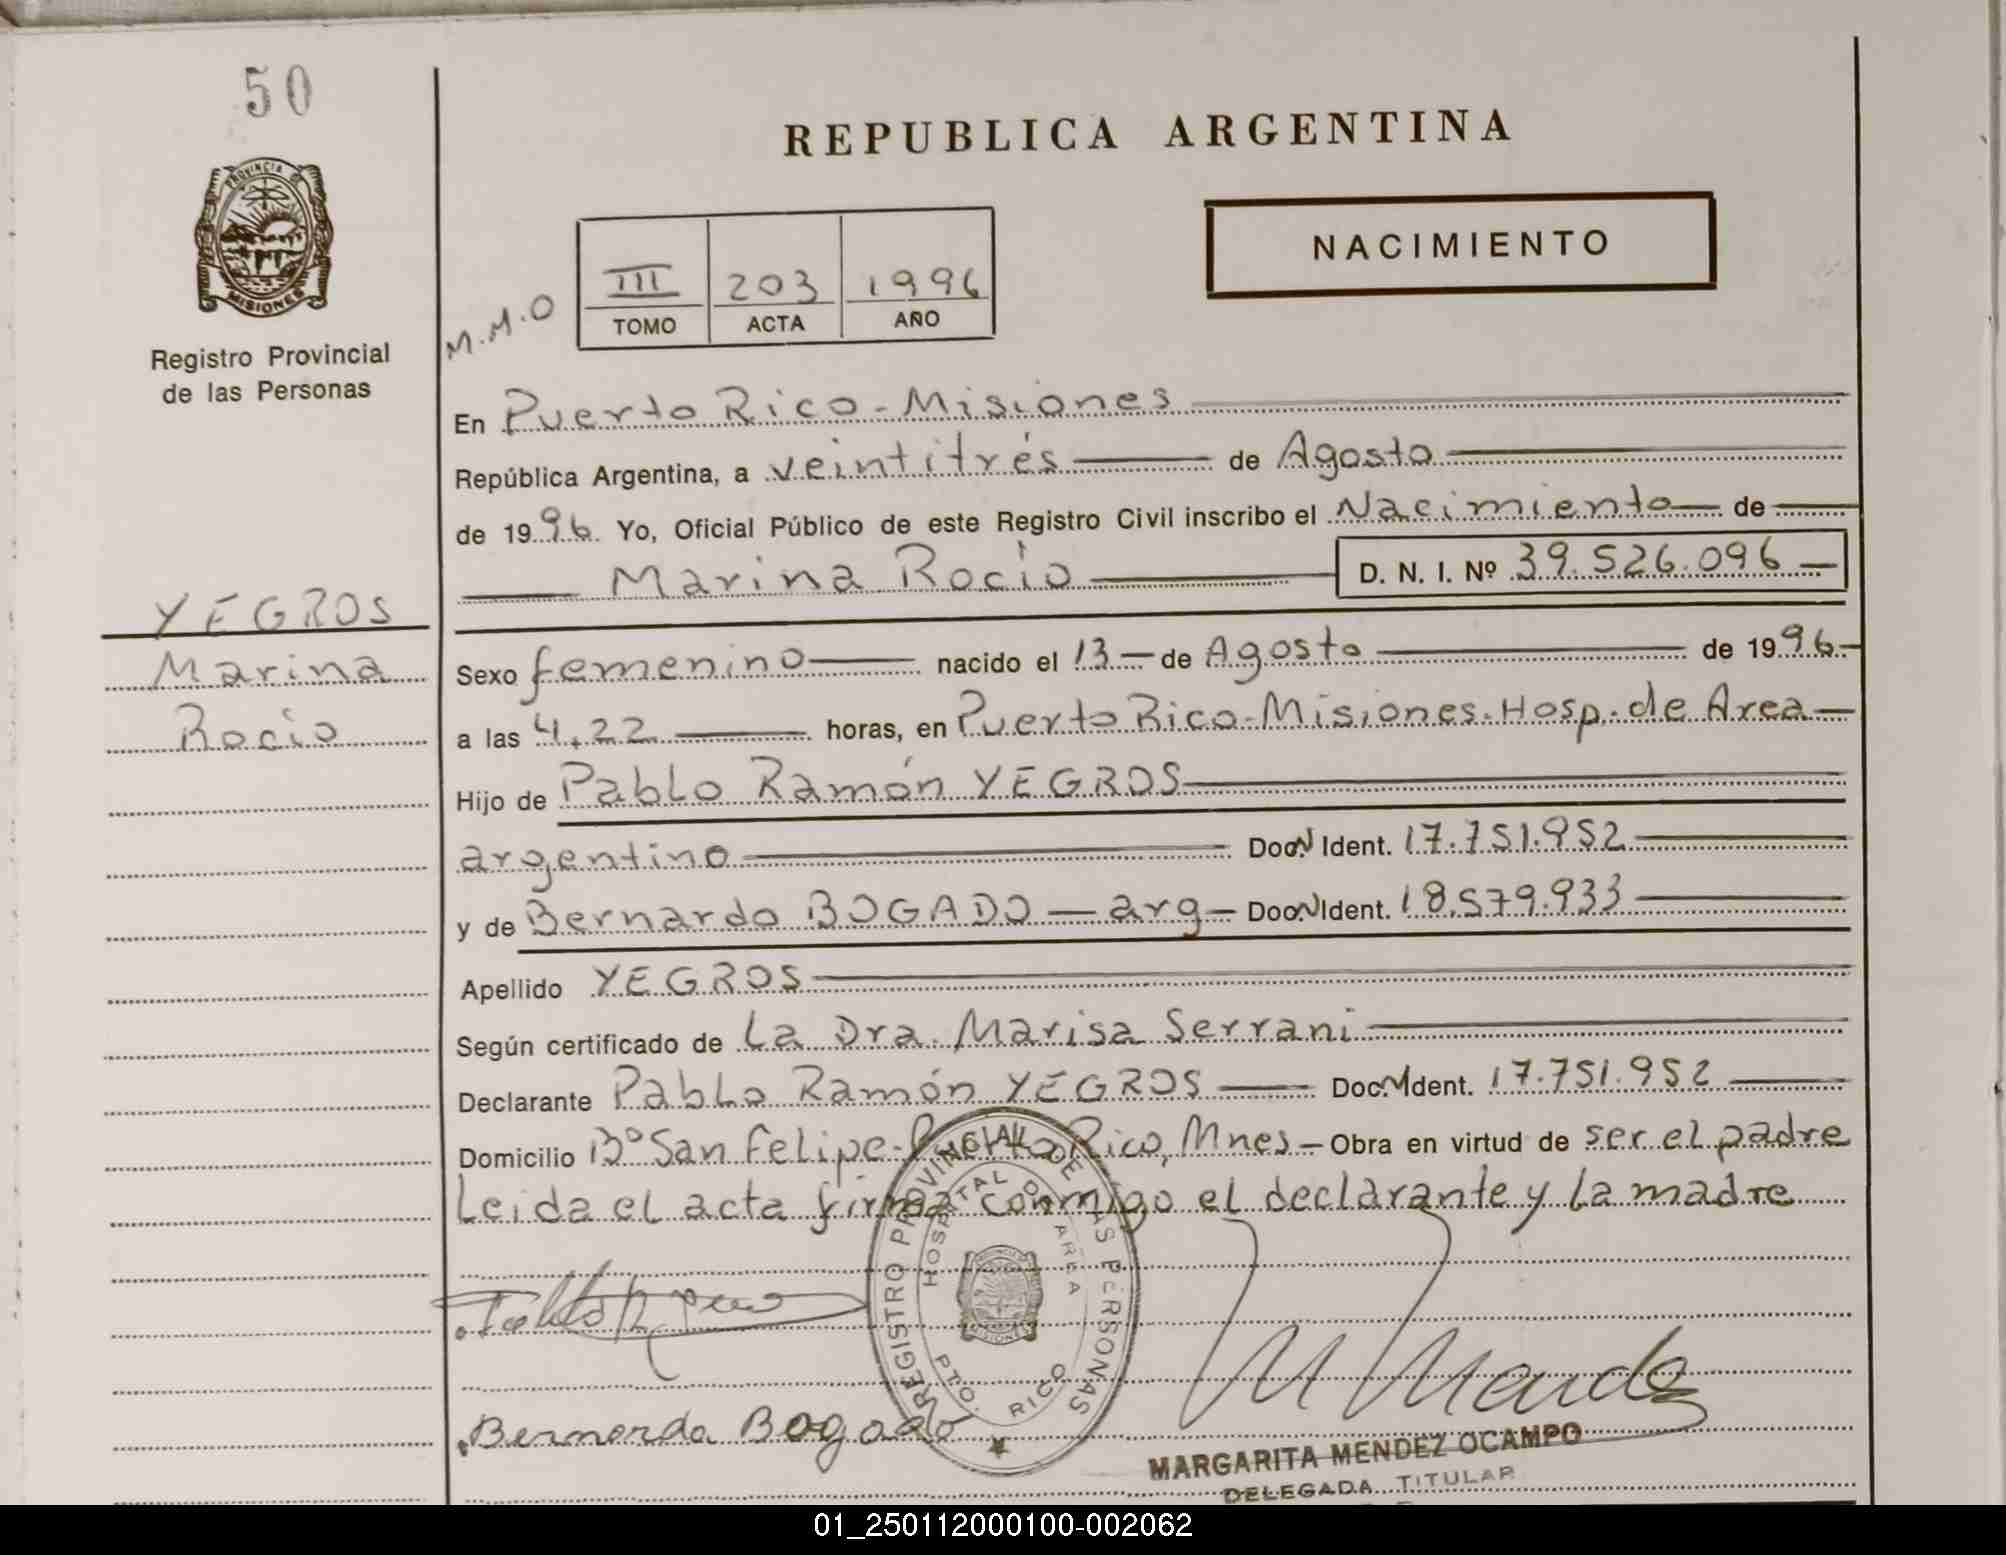 50
REPUBLICA ARGENTINA
PROVINCIA DE
MISIONES
NACIMIENTO
III 203 1996
TOMO ACTA AÑO
M.M.O
Registro Provincial
de las Personas
En Puerto Rico - Misiones
República Argentina, a veintitrés de Agosto
de 1996. Yo, Oficial Público de este Registro Civil inscribo el Nacimiento de
Marina Rocío D. N. I. Nº 39.526.096
YEGROS
Marina
Rocío
Sexo femenino nacido el 13 de Agosto de 1996
a las 4.22 horas, en Puerto Rico-Misiones. Hosp. de Area
Hijo de Pablo Ramón YEGROS
argentino Doc. N Ident. 17.751.952
y de Bernardo BOGADO — arg — Doc. N Ident. 18.579.933
Apellido YEGROS
Según certificado de La Dra. Marisa Serrani
Declarante Pablo Ramón YEGROS Doc. N Ident. 17.751.952
Domicilio Bº San Felipe - Puerto Rico, Mnes - Obra en virtud de ser el padre
Leida el acta firma conmigo el declarante y la madre
REGISTRO PROVINCIAL DE LAS PERSONAS
HOSPITAL DE AREA
MISIONES
PTO. RICO
Bernarda Bogado
M Mendez
MARGARITA MENDEZ OCAMPO
DELEGADA TITULAR
01_250112000100-002062